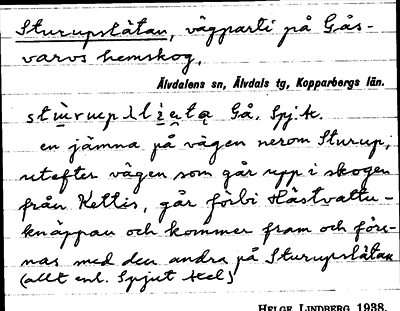 Sturupslåtan, vägparti på Gås-
varvs hemskog.
Älvdalens sn, Älvdals tg, Kopparbergs län.
Gå. Spj.A.
en jämna på vägen nerom Sturup,
utefter vägen som går upp i skogen
från Kettis, går förbi Hästvattu-
knäppan och kommer fram och före-
nas med den andra på Sturupslåtan
(allt enl. Spjut Axel)
HELGE LINDBERG 1938.